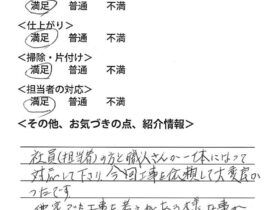 満足 普通 不満
<仕上がり>
満足 普通 不満
<掃除・片付け>
満足 普通 不満
<担当者の対応>
満足 普通 不満
<その他、お気づきの点、紹介情報>
社員(担当者)の方と職人さんが一体になって
対応して下さり、今回工事を依頼して大変良か
ったです